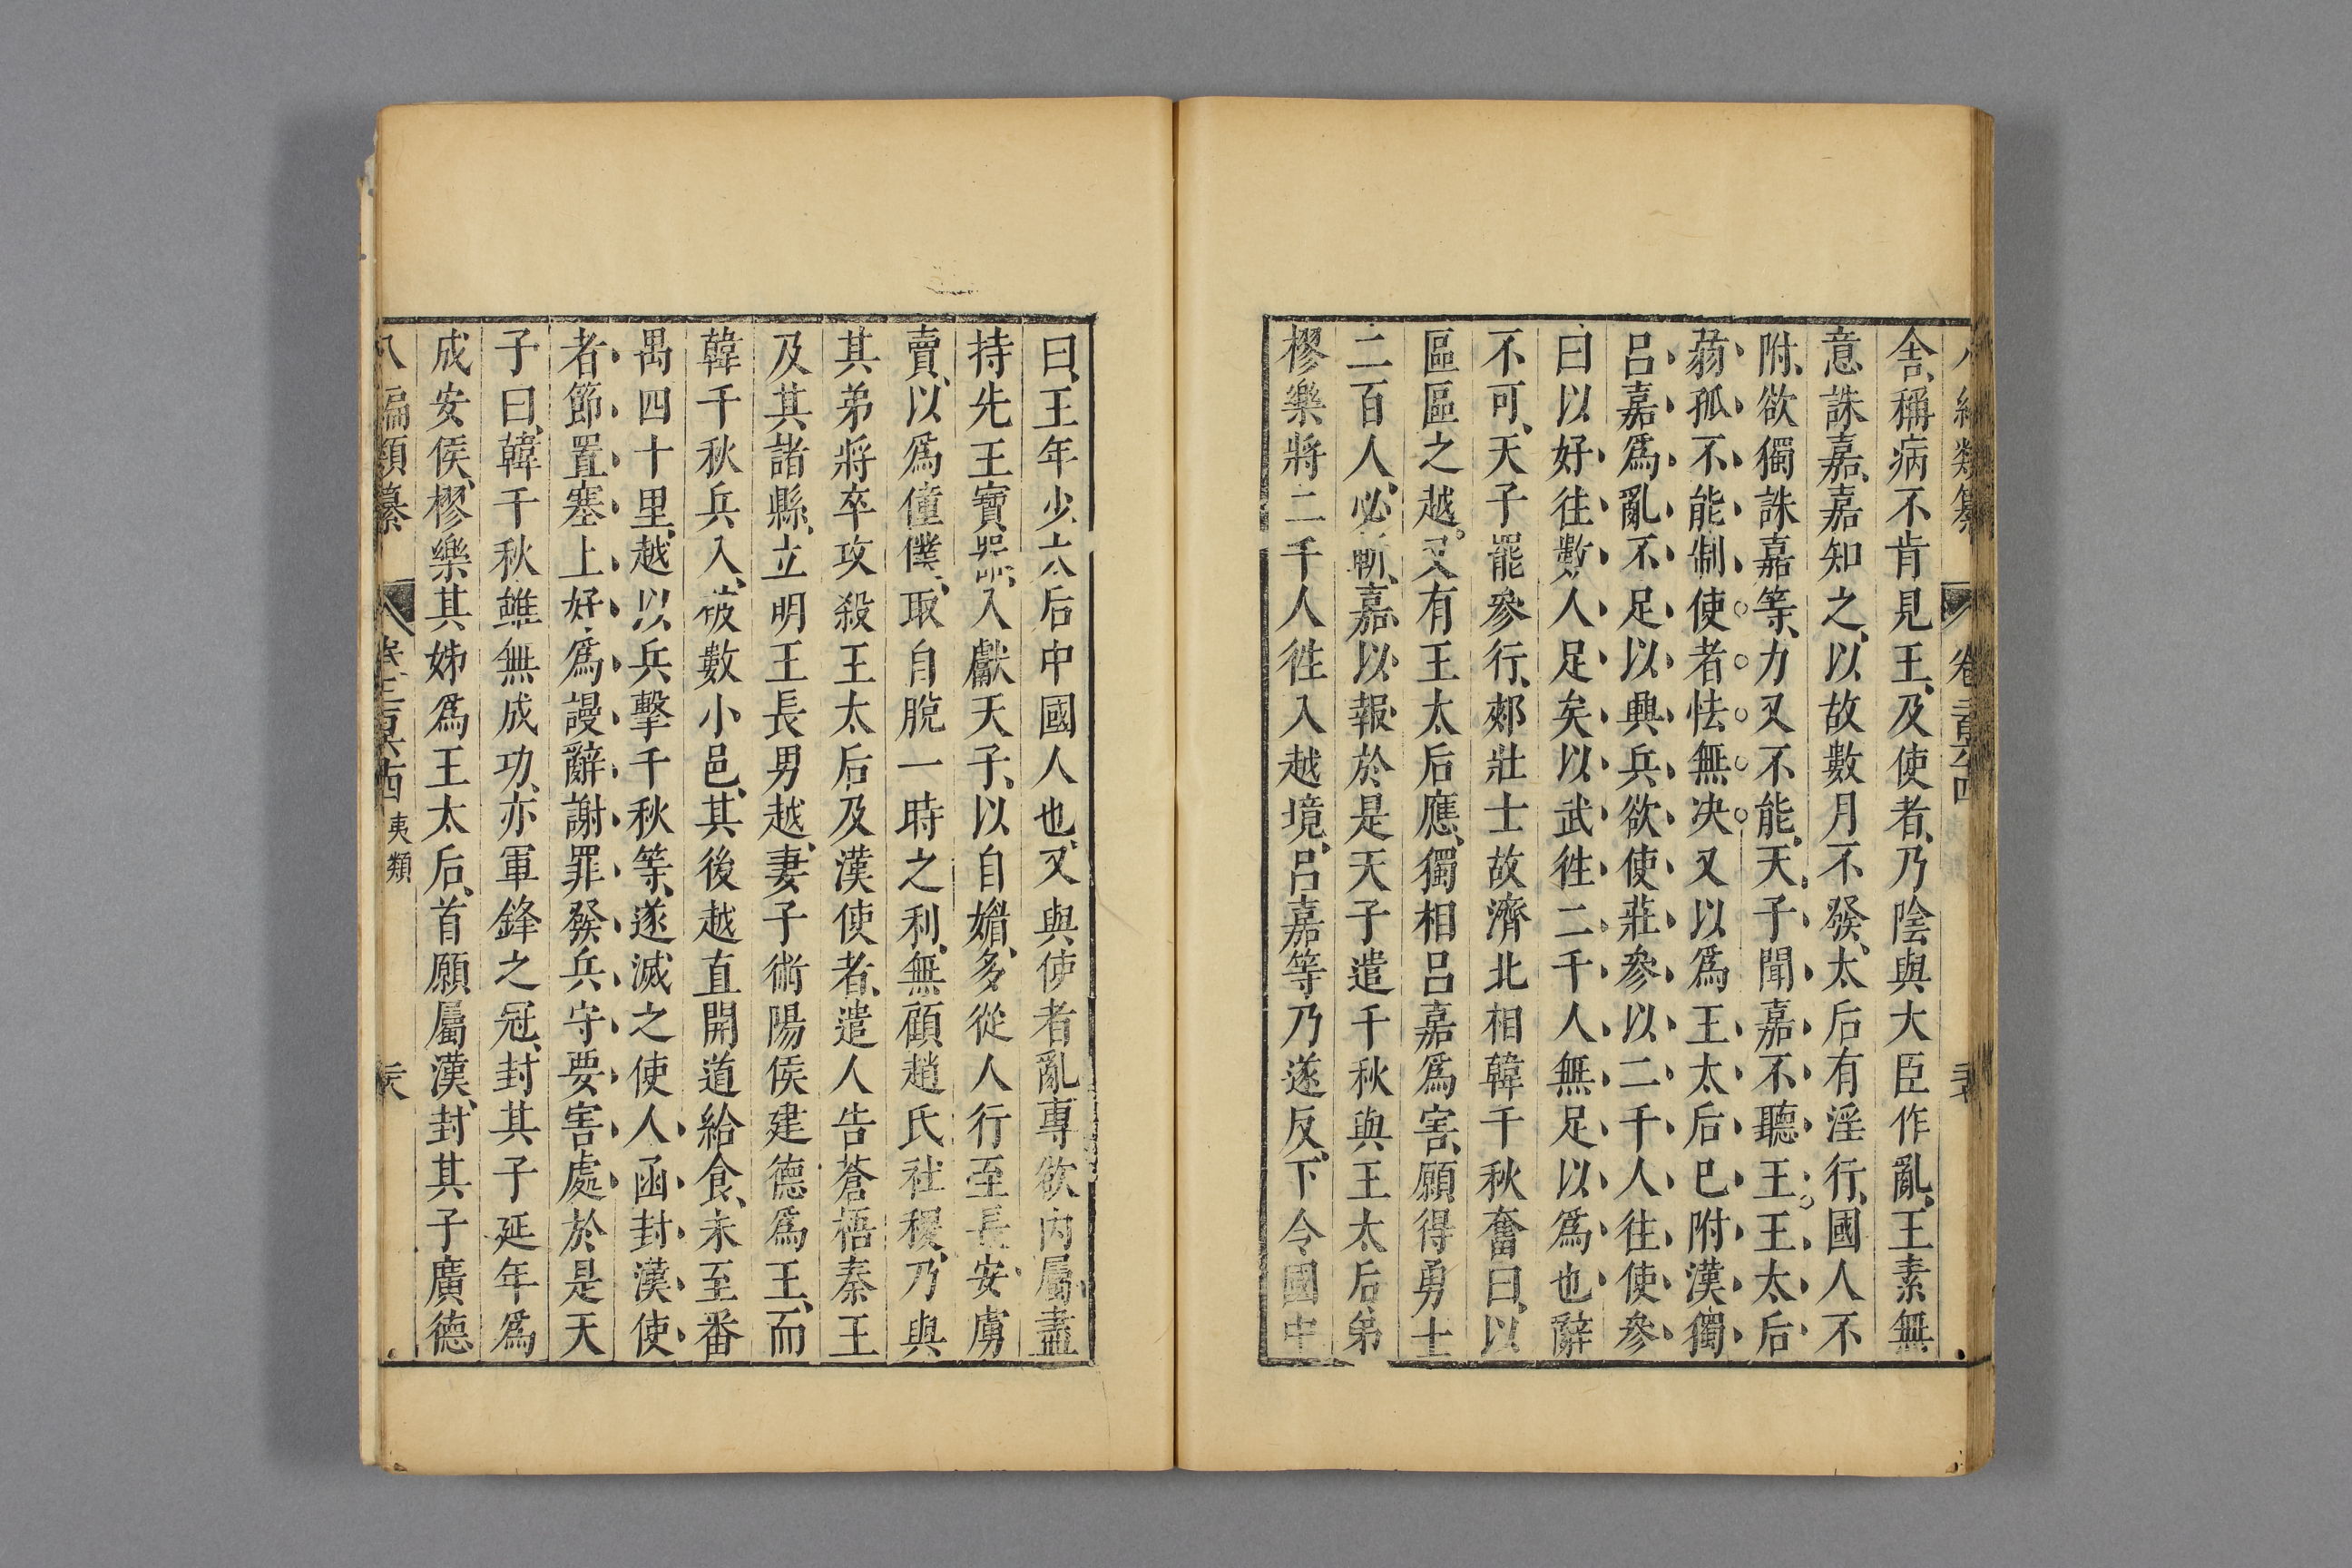 八編類纂 卷二百六十四
舍、稱病不肯見王、及使者、乃陰與大臣作亂、王素無
意誅嘉、嘉知之、以故數月不發、太后有淫行、國人不
附、欲獨誅嘉等、力又不能、天子聞嘉不聽王、王太后
蒻孤不能制使者怯無决又以爲王太后已附漢獨
呂嘉爲亂不足以興兵欲使莊參以二千人往使參
曰以好往數人足矣以武往二千人無足以爲也辭
不可、天子罷參行、郟壯士故濟北相韓千秋奮曰、以
區區之越。又有王太后應、獨相呂嘉爲害、願得勇士
二百人、必斬嘉以報於是天子遣千秋與王太后弟
樛樂將二千人徃入越境、呂嘉等乃遂反、下令國中
曰、王年少太后中國人也、又與使者亂專欲內屬盡
持先王寶器、入獻天子、以自媚、多從人行至長安虜
賣、以爲僮僕、取自脫一時之利、無顧趙氏社稷、乃與
其弟將卒攻殺王太后及漢使者、遣人告蒼梧秦王
及其諸縣、立明王長男越、妻子術陽侯建德爲王、而
韓千秋兵入、破數小邑、其後越直開道給食、未至番
禺四十里、越以兵擊千秋等、遂滅之使人函封漢使
者節置塞上好爲謾辭謝罪發兵守要害處於是天
子曰、韓千秋雖無成功、亦軍鋒之冠、封其子延年爲
成安侯、樛樂其姊爲王太后、首願屬漢、封其子廣德
八編類纂 卷二百六十四 夷類